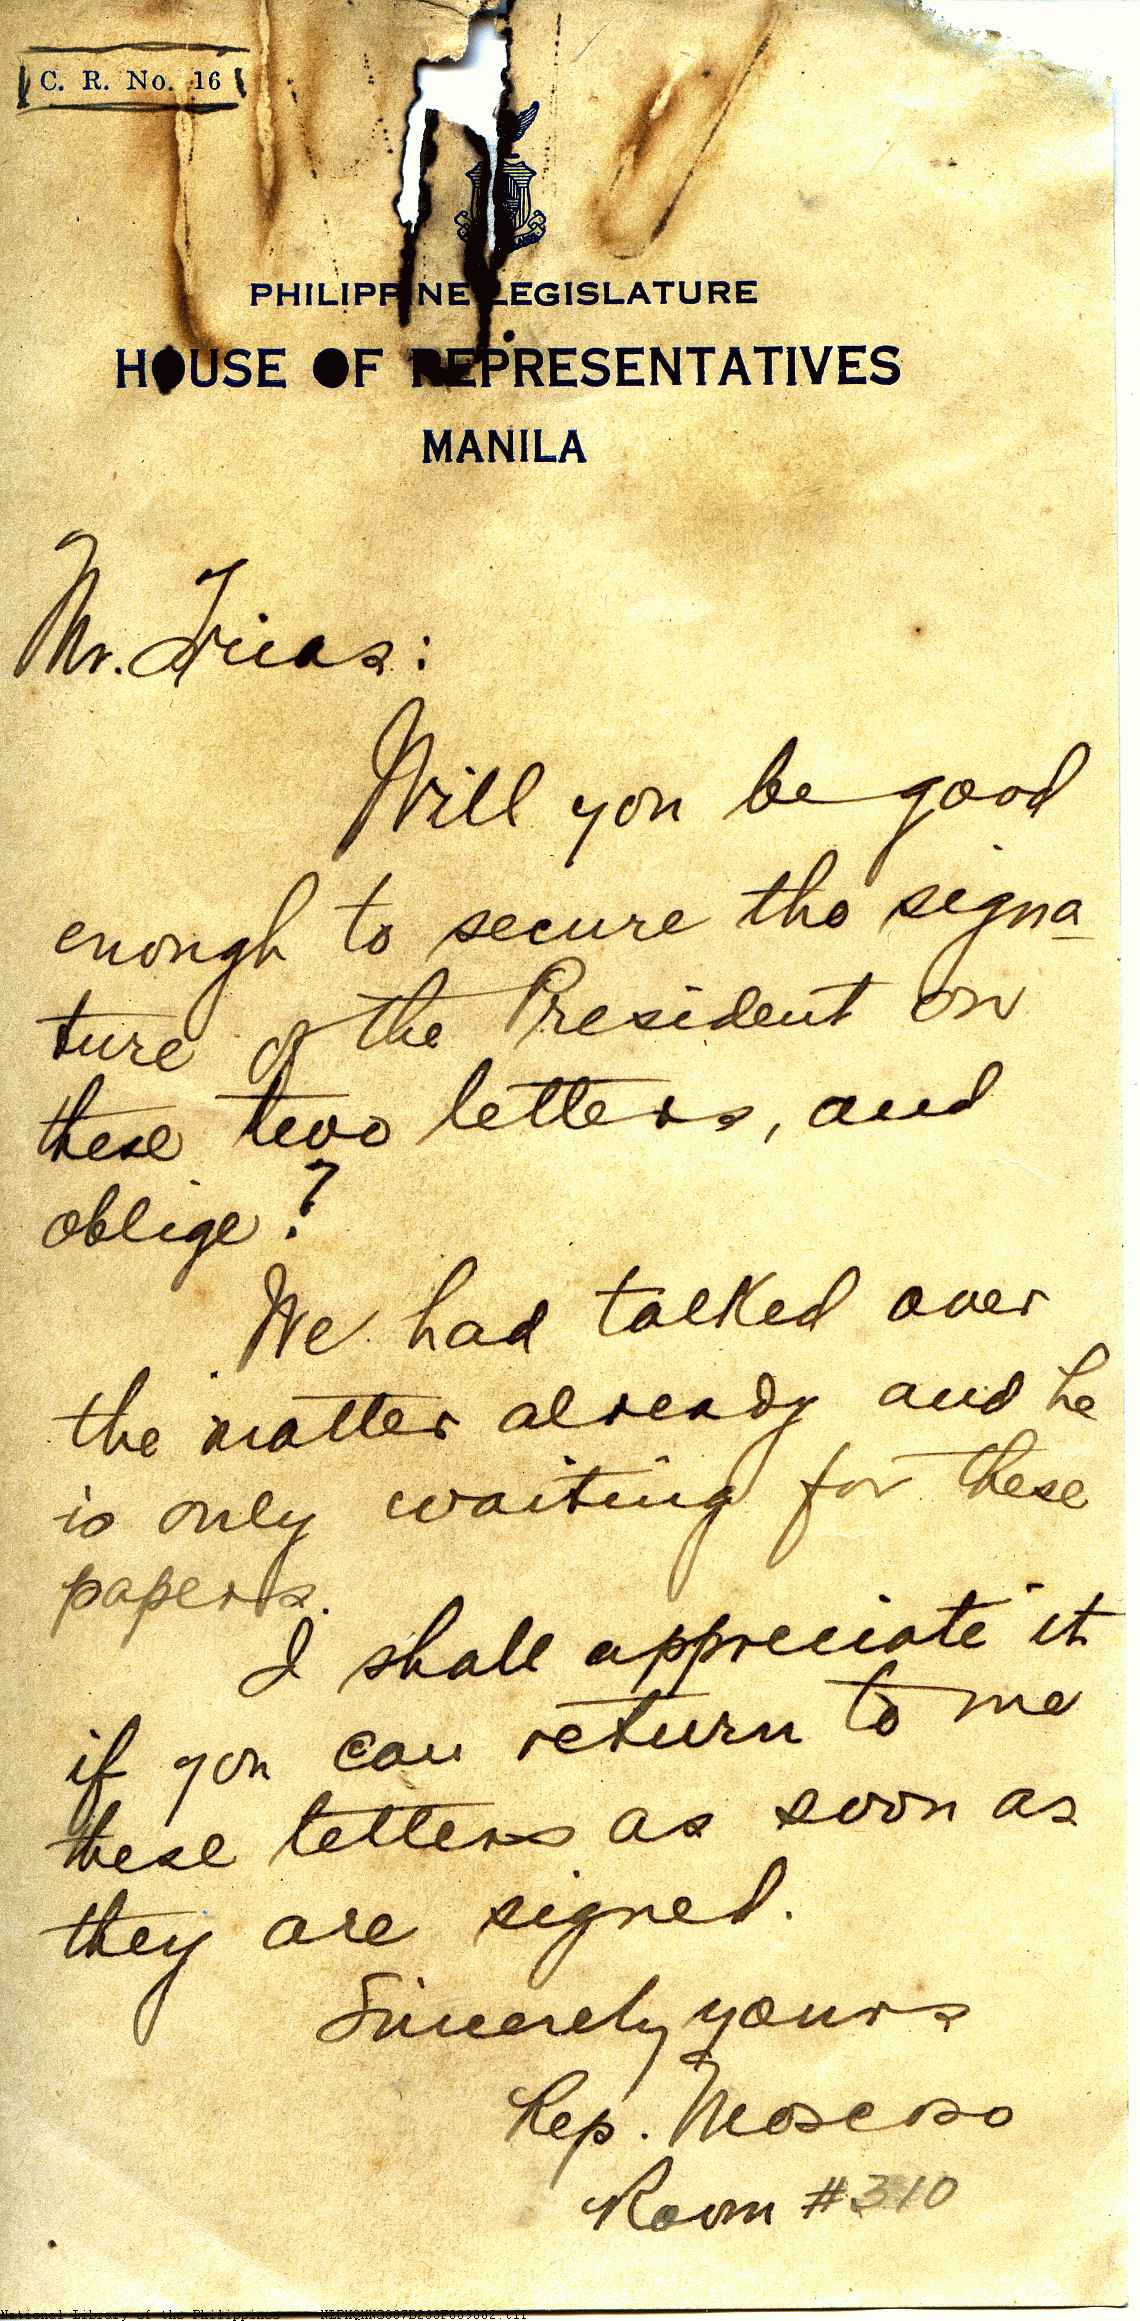 C. R. No. 16
PHILIPPINE LEGISLATURE
HOUSE OF REPRESENTATIVES
MANILA
Mr. Trias:
Will you be good
enough to secure the signa-
ture of the President on
these two letters, and
oblige?
We had talked over
the matter already and he
is only waiting for these
papers.
I shall appreciate it
if you can return to me
these letters as soon as
they are signed.
Sincerely yours
Rep. Moscoso
Room #310
National Library of the Philippines